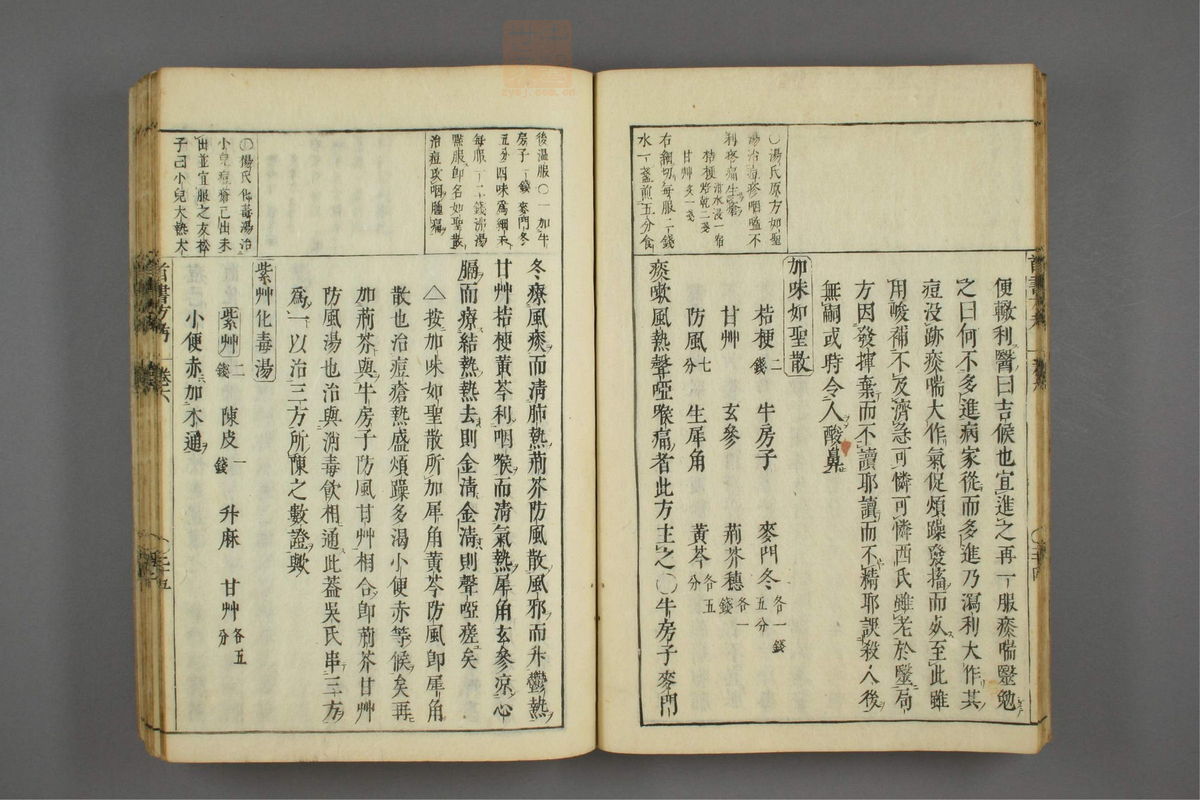 ○湯氏原方如聖
湯治痘疹咽嗌不
利疼痛生瘡
桔梗 泔水浸一宿焙乾二戔
甘艸 炙一戔
右細切每服二錢
水一盞煎五分食
便轍利醫曰吉候也宜進之再一服痰喘毉勉
之曰何不多進病家從而多進乃瀉利大作其
痘没跡痰喘大作氣促煩躁發搐而妖至此雖
用峻補不及濟急可憐可憐西氏雖老於毉荀
方因發揮棄而不讀耶讀而不精耶誤殺人後
無嗣或時令人酸鼻
加味如聖散
桔梗 二錢 牛房子 麥門冬 各一錢五分
甘艸 玄參 荊芥穗 各一錢
防風 七分 生犀角 黃芩 各五分
痰嗽風熱聲啞喉痛者此方主之○牛房子麥門
後温服○一加牛
房子一錢 麥門冬
五分四味為細末
每服一二錢沸湯
點服卽名如聖散
治痘攻咽腫痛
冬療風痰而清肺熱荊芥防風散風邪而升鬱熱
甘艸桔梗黃芩利咽喉而清氣熱犀角玄參凉心
膈而療結熱熱去則金清金清則聲啞瘥矣
△按加味如聖散所加犀角黃芩防風卽犀角
散也治痘瘡熱盛煩躁多渴小便赤等候矣再
加荊芥與牛房子防風甘艸相合卽荊芥甘艸
防風湯也治與消毒飲相通此蓋吳氏串三方
為一以治三方所陳之數證歟
○湯氏化毒湯治
小兒痘瘡已出未
出並宜服之友松
子曰小兒大熱犬
紫艸化毒湯
紫艸 二錢 陳皮 一錢 升麻 甘艸 各五分
小便赤加木通